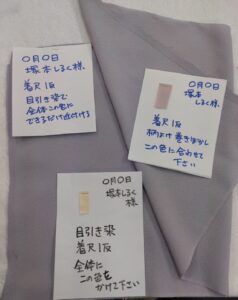 〇月〇日
塚本しるく様
着尺1反
目引き染で
全体この色に
できるだけ近付ける
〇月〇日
塚本
しるく様
着尺1反
柄よけ巻きぼかし
この色に合わせて
下さい
〇月〇日
塚本しるく
様
目引き染
着尺1反
全体に
この色を
かけて下さい